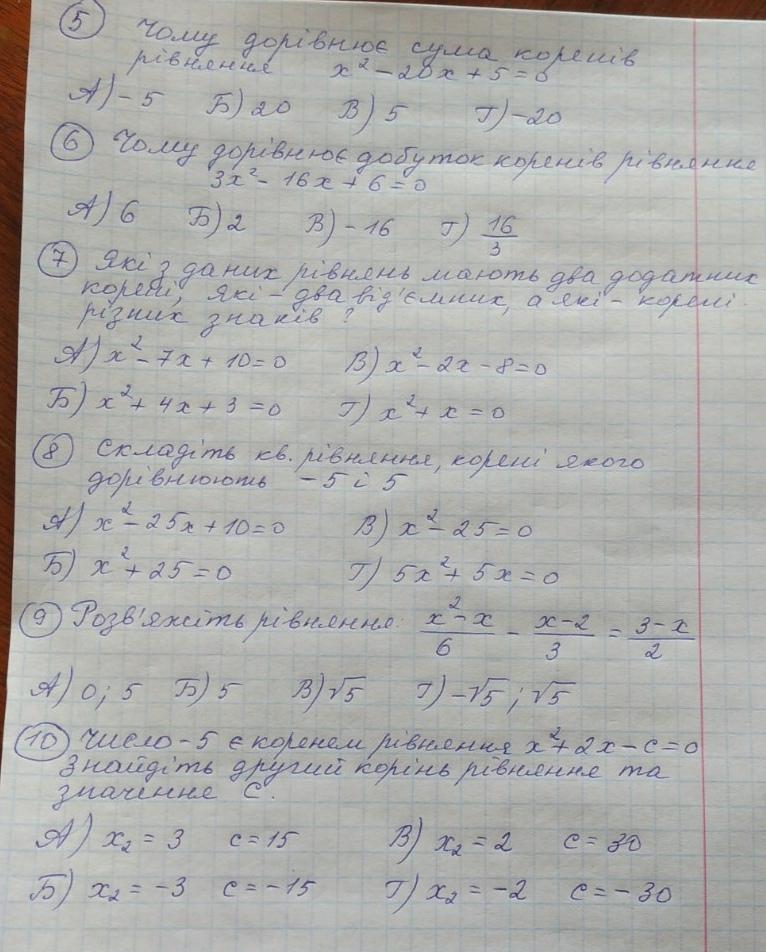 5 Чому дорівнює сума коренів
рівняння x² - 20x + 5 = 0
А) - 5 Б) 20 В) 5 Г) - 20
6 Чому дорівнює добуток коренів рівняння
3x² - 16x + 6 = 0
А) 6 Б) 2 В) - 16 Г) 16/3
7 Які з даних рівнянь мають два додатних
корені, які - два від'ємних, а які - корені
різних знаків?
А) x² - 7x + 10 = 0 В) x² - 2x - 8 = 0
Б) x² + 4x + 3 = 0 Г) x² + x = 0
8 Складіть кв. рівняння, корені якого
дорівнюють - 5 і 5
А) x² - 25x + 10 = 0 В) x² - 25 = 0
Б) x² + 25 = 0 Г) 5x² + 5x = 0
9 Розв'яжіть рівняння: (x² - x)/6 - (x - 2)/3 = (3 - x)/2
А) 0; 5 Б) 5 В) √5 Г) -√5; √5
10 Число - 5 є коренем рівняння x² + 2x - c = 0
Знайдіть другий корінь рівняння та
значення c.
А) x₂ = 3 c = 15 В) x₂ = 2 c = 30
Б) x₂ = -3 c = -15 Г) x₂ = -2 c = -30